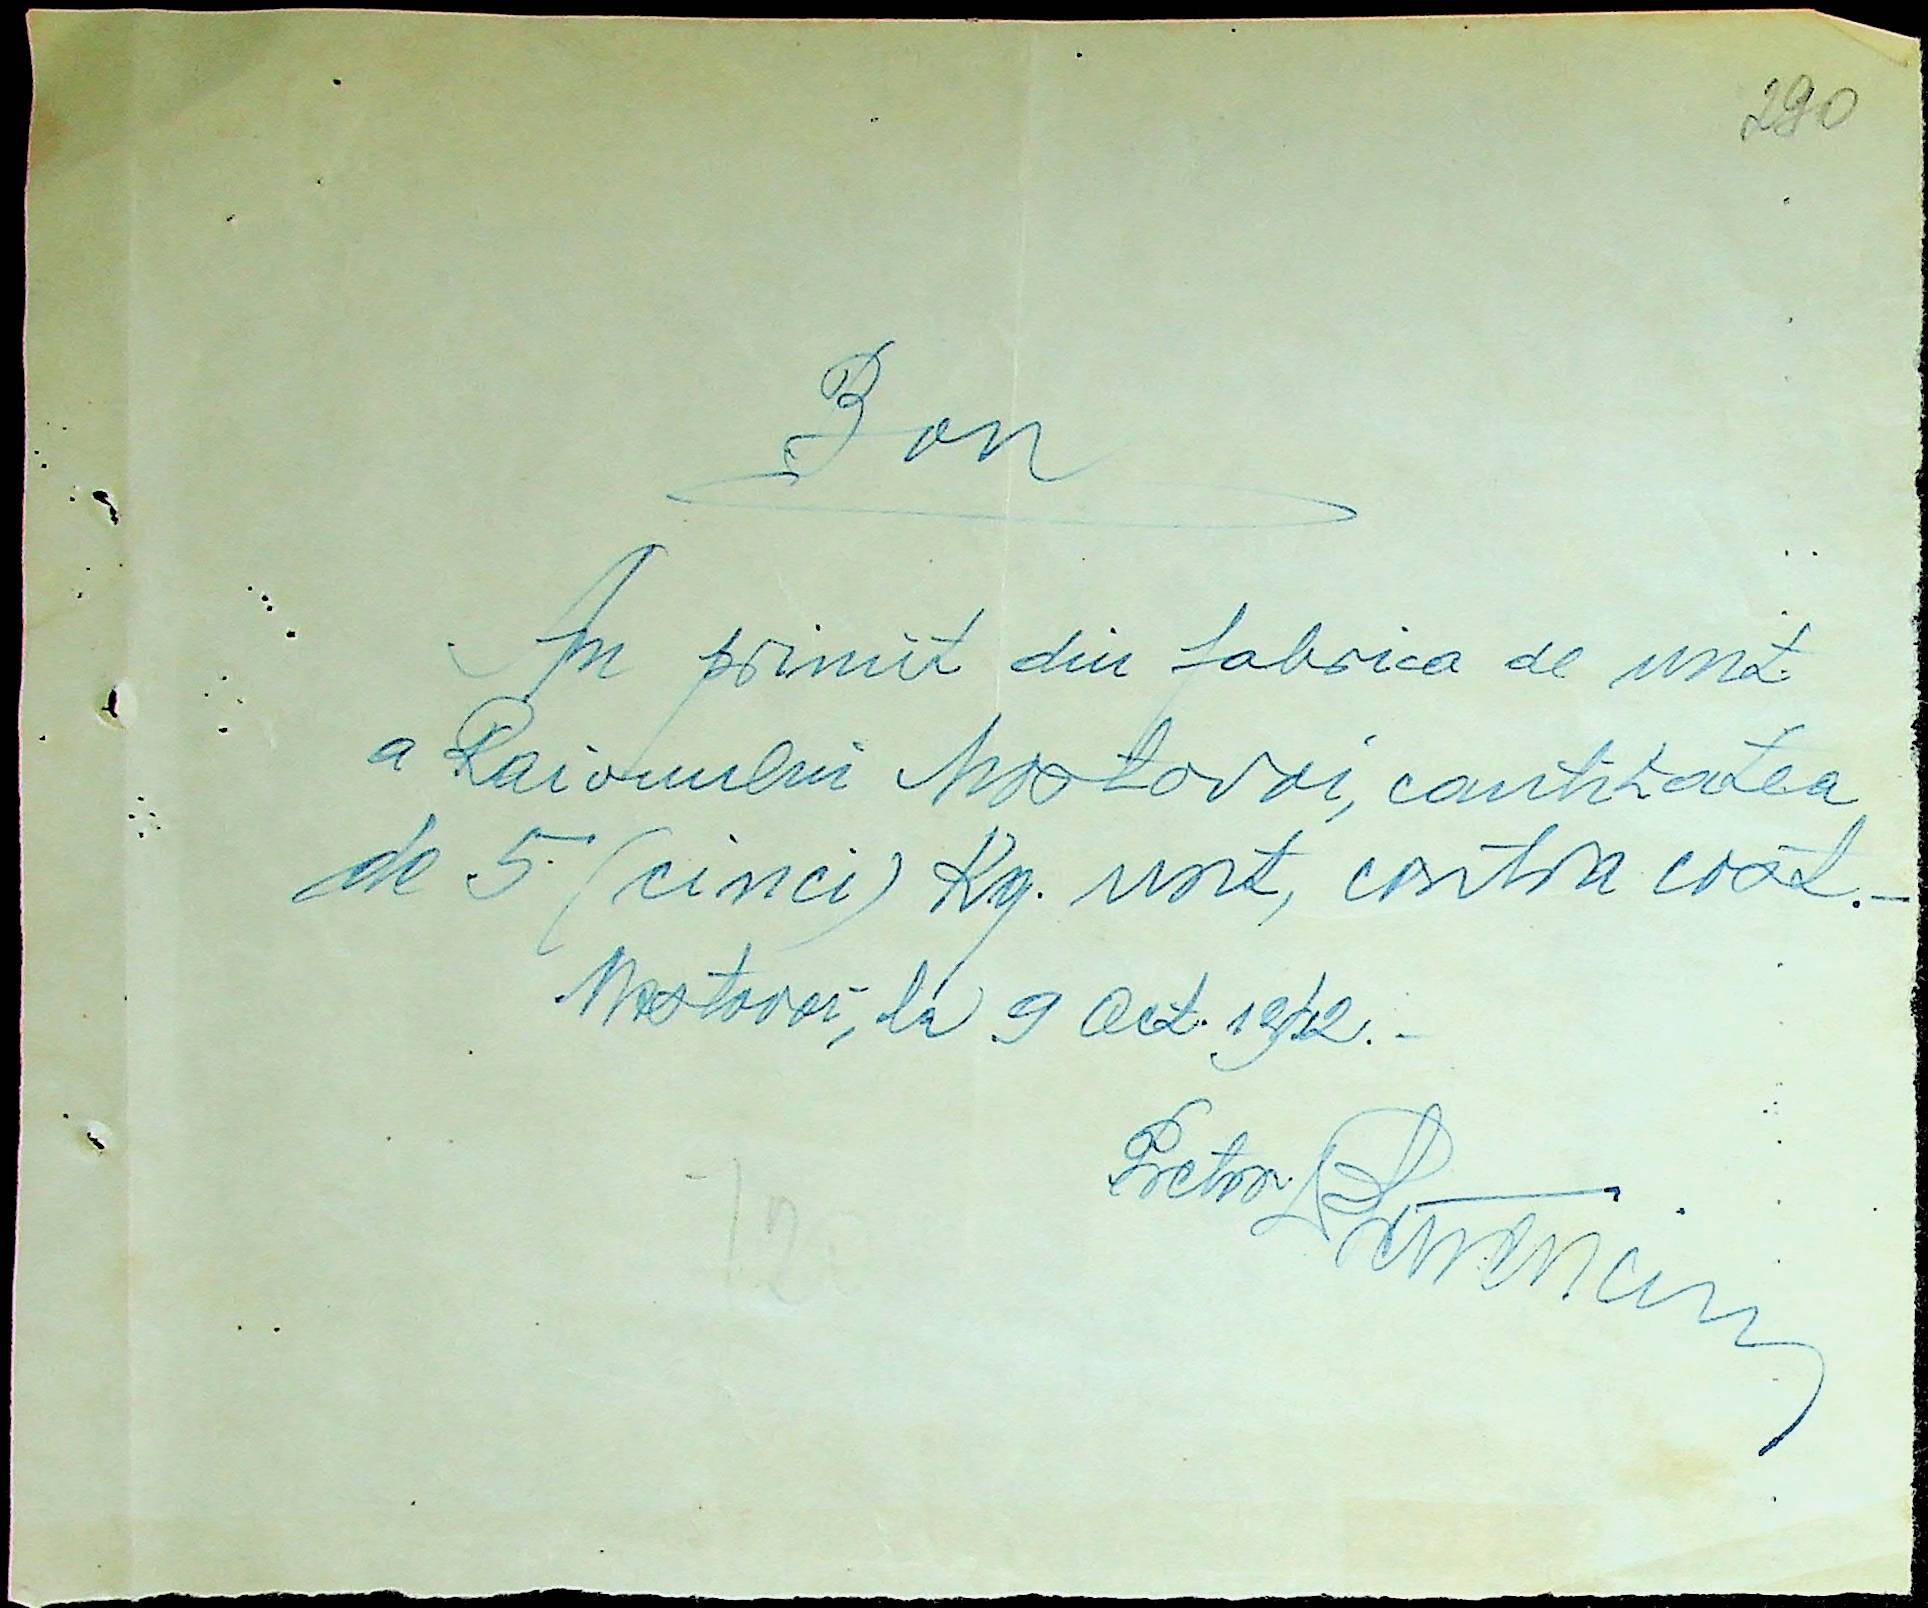 290
Bon
Am primit din fabrica de unt
a Raionului Mostovoi, cantitatea
de 5 (cinci) Kg. unt, contra cost.-
Mostovoi, la 9 Oct. 1942.-
Pretor